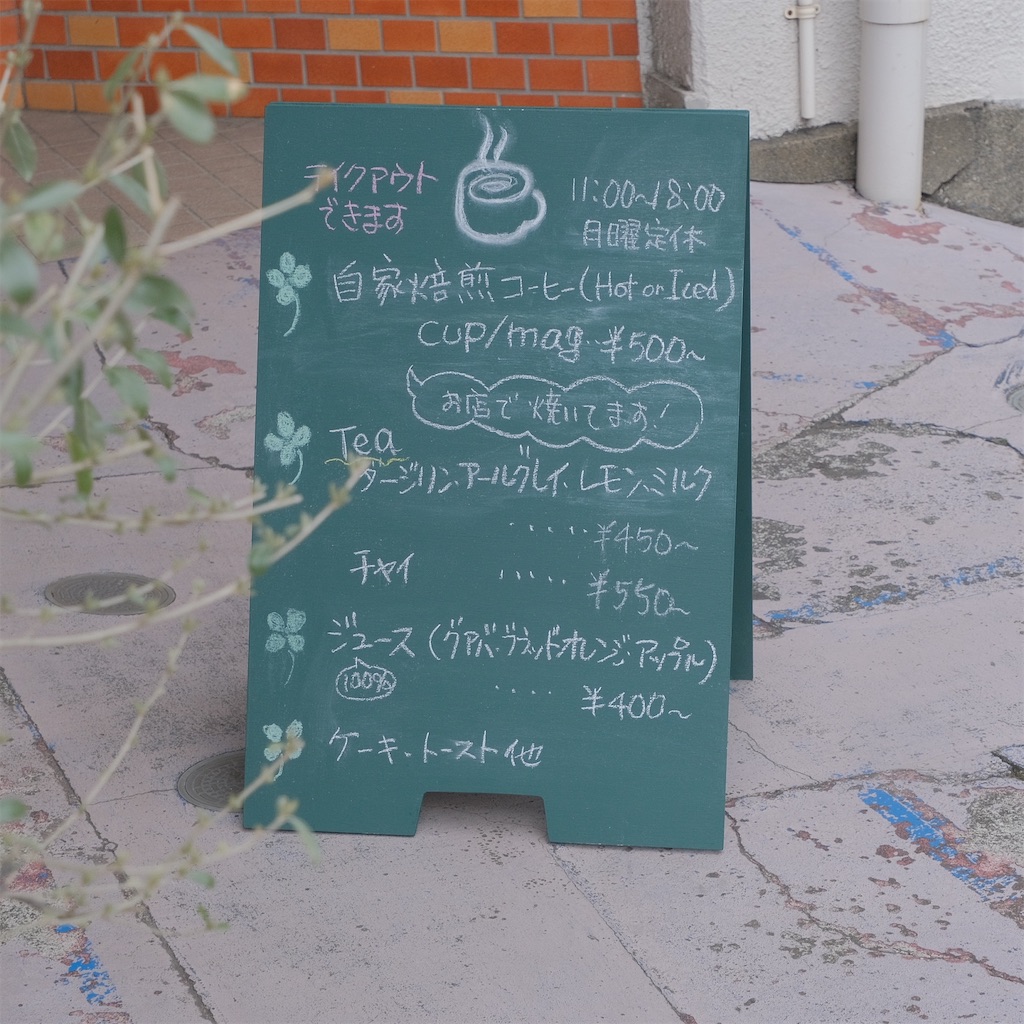 テイクアウト
できます
11:00~18:00
月曜定休
自家焙煎コーヒー(Hot or Iced)
cup/mag..¥500~
お店で焼いてます!
Tea
ダージリン・アールグレイ・レモン・ミルク
.....¥450~
チャイ.....¥550~
ジュース(グアバ・ブラッドオレンジ・アップル)
100%
....¥400~
ケーキ・トースト他